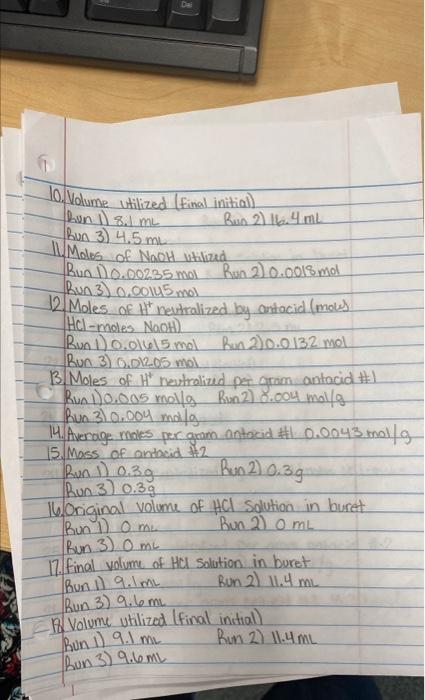 Del
10. Volume utilized (final initial)
Run 1) 8.1 mL Run 2) 16.4 mL
Run 3) 4.5 mL
11. Moles of NaOH utilized
Run 1) 0.00235 mol Run 2) 0.0018 mol
Run 3) 0.00145 mol
12. Moles of H+ neutralized by antacid (moles
HCl-moles NaOH)
Run 1) 0.01615 mol Run 2) 0.0132 mol
Run 3) 0.01205 mol
13. Moles of H+ neutralized per gram antacid #1
Run 1) 0.005 mol/g Run 2) 0.004 mol/g
Run 3) 0.004 mol/g
14. Average moles per gram antacid #1 0.0043 mol/g
15. Mass of antacid #2
Run 1) 0.3g Run 2) 0.3g
Run 3) 0.3g
16. Original volume of HCl solution in buret
Run 1) 0 mL Run 2) 0 mL
Run 3) 0 mL
17. final volume of HCl solution in buret
Run 1) 9.1mL Run 2) 11.4 mL
Run 3) 9.6 mL
18. Volume utilized (final initial)
Run 1) 9.1 mL Run 2) 11.4mL
Run 3) 9.6 mL